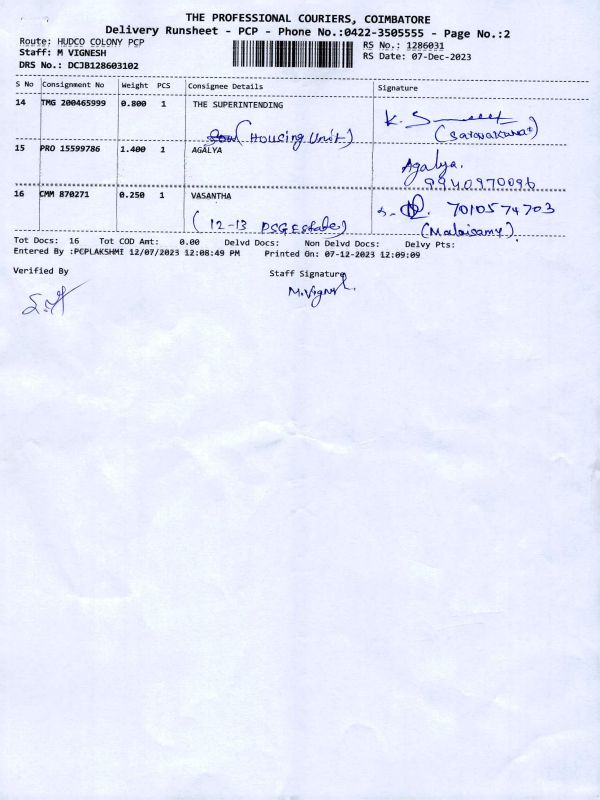 THE PROFESSIONAL COURIERS, COIMBATORE
Delivery Runsheet - PCP - Phone No.:0422-3505555 - Page No.:2
Route: HUDCO COLONY PCP RS No.: 1286031
Staff: M VIGNESH RS Date: 07-Dec-2023
DRS No.: DCJB128603102
S No Consignment No Weight PCS Consignee Details Signature
14 TMG 200465999 0.800 1 THE SUPERINTENDING
K. S
(Housing Unit) (Saravakumar)
15 PRO 15599786 1.400 1 AGALYA Agalya.
9940970096
16 CMM 870271 0.250 1 VASANTHA 7010574703
(12-13 PSG Estate) (Malaisamy).
Tot Docs: 16 Tot COD Amt: 0.00 Delvd Docs: Non Delvd Docs: Delvy Pts:
Entered By :PCPLAKSHMI 12/07/2023 12:08:49 PM Printed On: 07-12-2023 12:09:09
Verified By Staff Signature
M.Vignesh